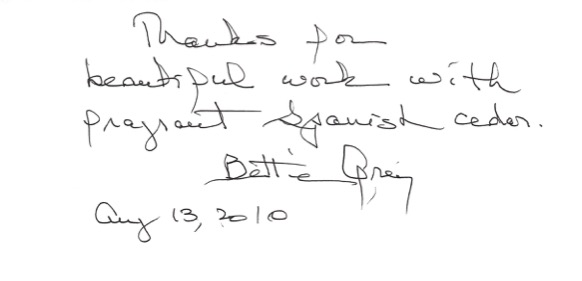 Thanks for
beautiful work with
fragrant Spanish cedar.
Bettie
Aug 13, 2010